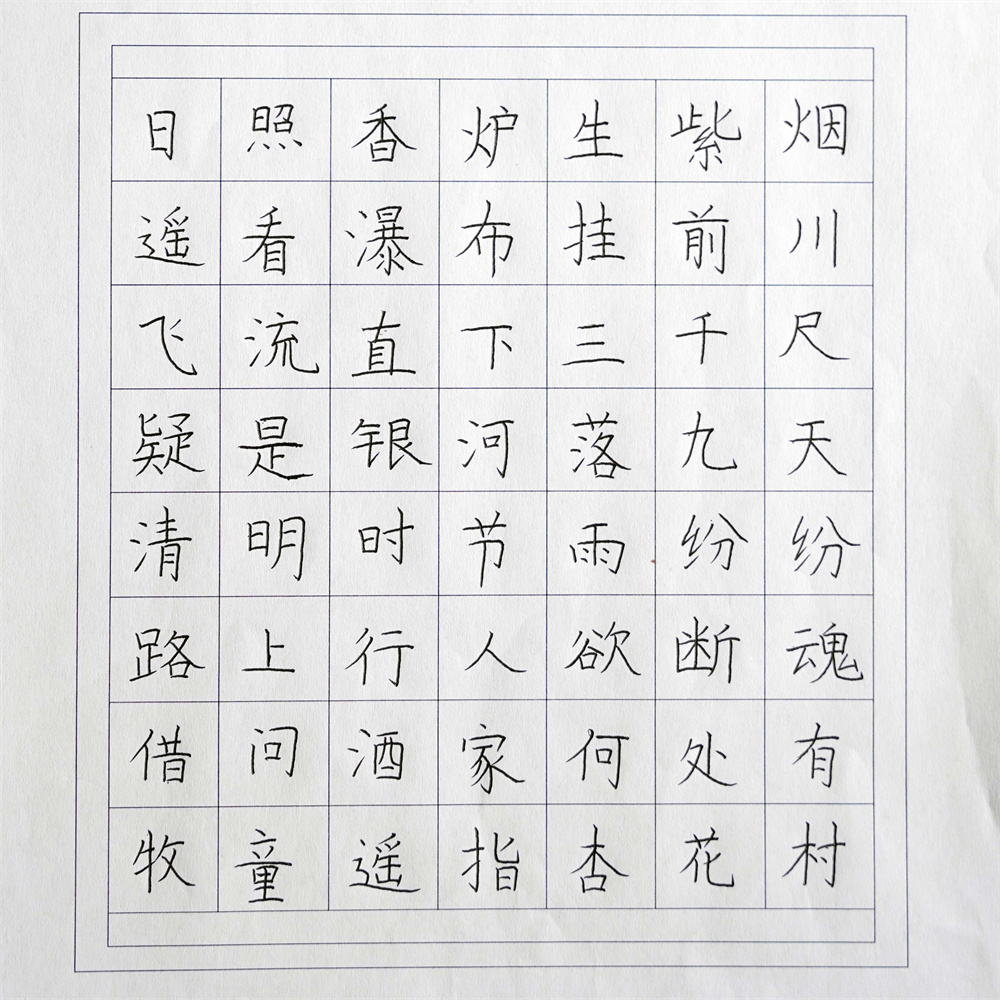 日照香炉生紫烟
遥看瀑布挂前川
飞流直下三千尺
疑是银河落九天
清明时节雨纷纷
路上行人欲断魂
借问酒家何处有
牧童遥指杏花村